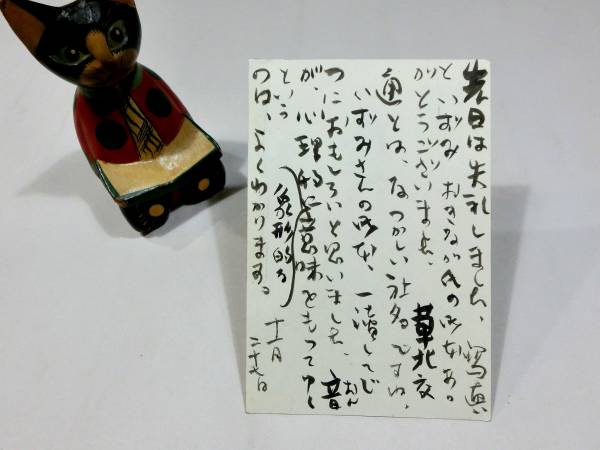 先日は失礼しました、写真
といずみ おきなが氏の御本あり
がとうございました、 草北交
通とは、なつかしい社名ですね、
いずみさんの御本、一讀してじ
つにおもしろいと思いました、音
おん
が、心理的に意味をもってゆく
象形的な
という
のは、よくわかります。
十一月
二十七日